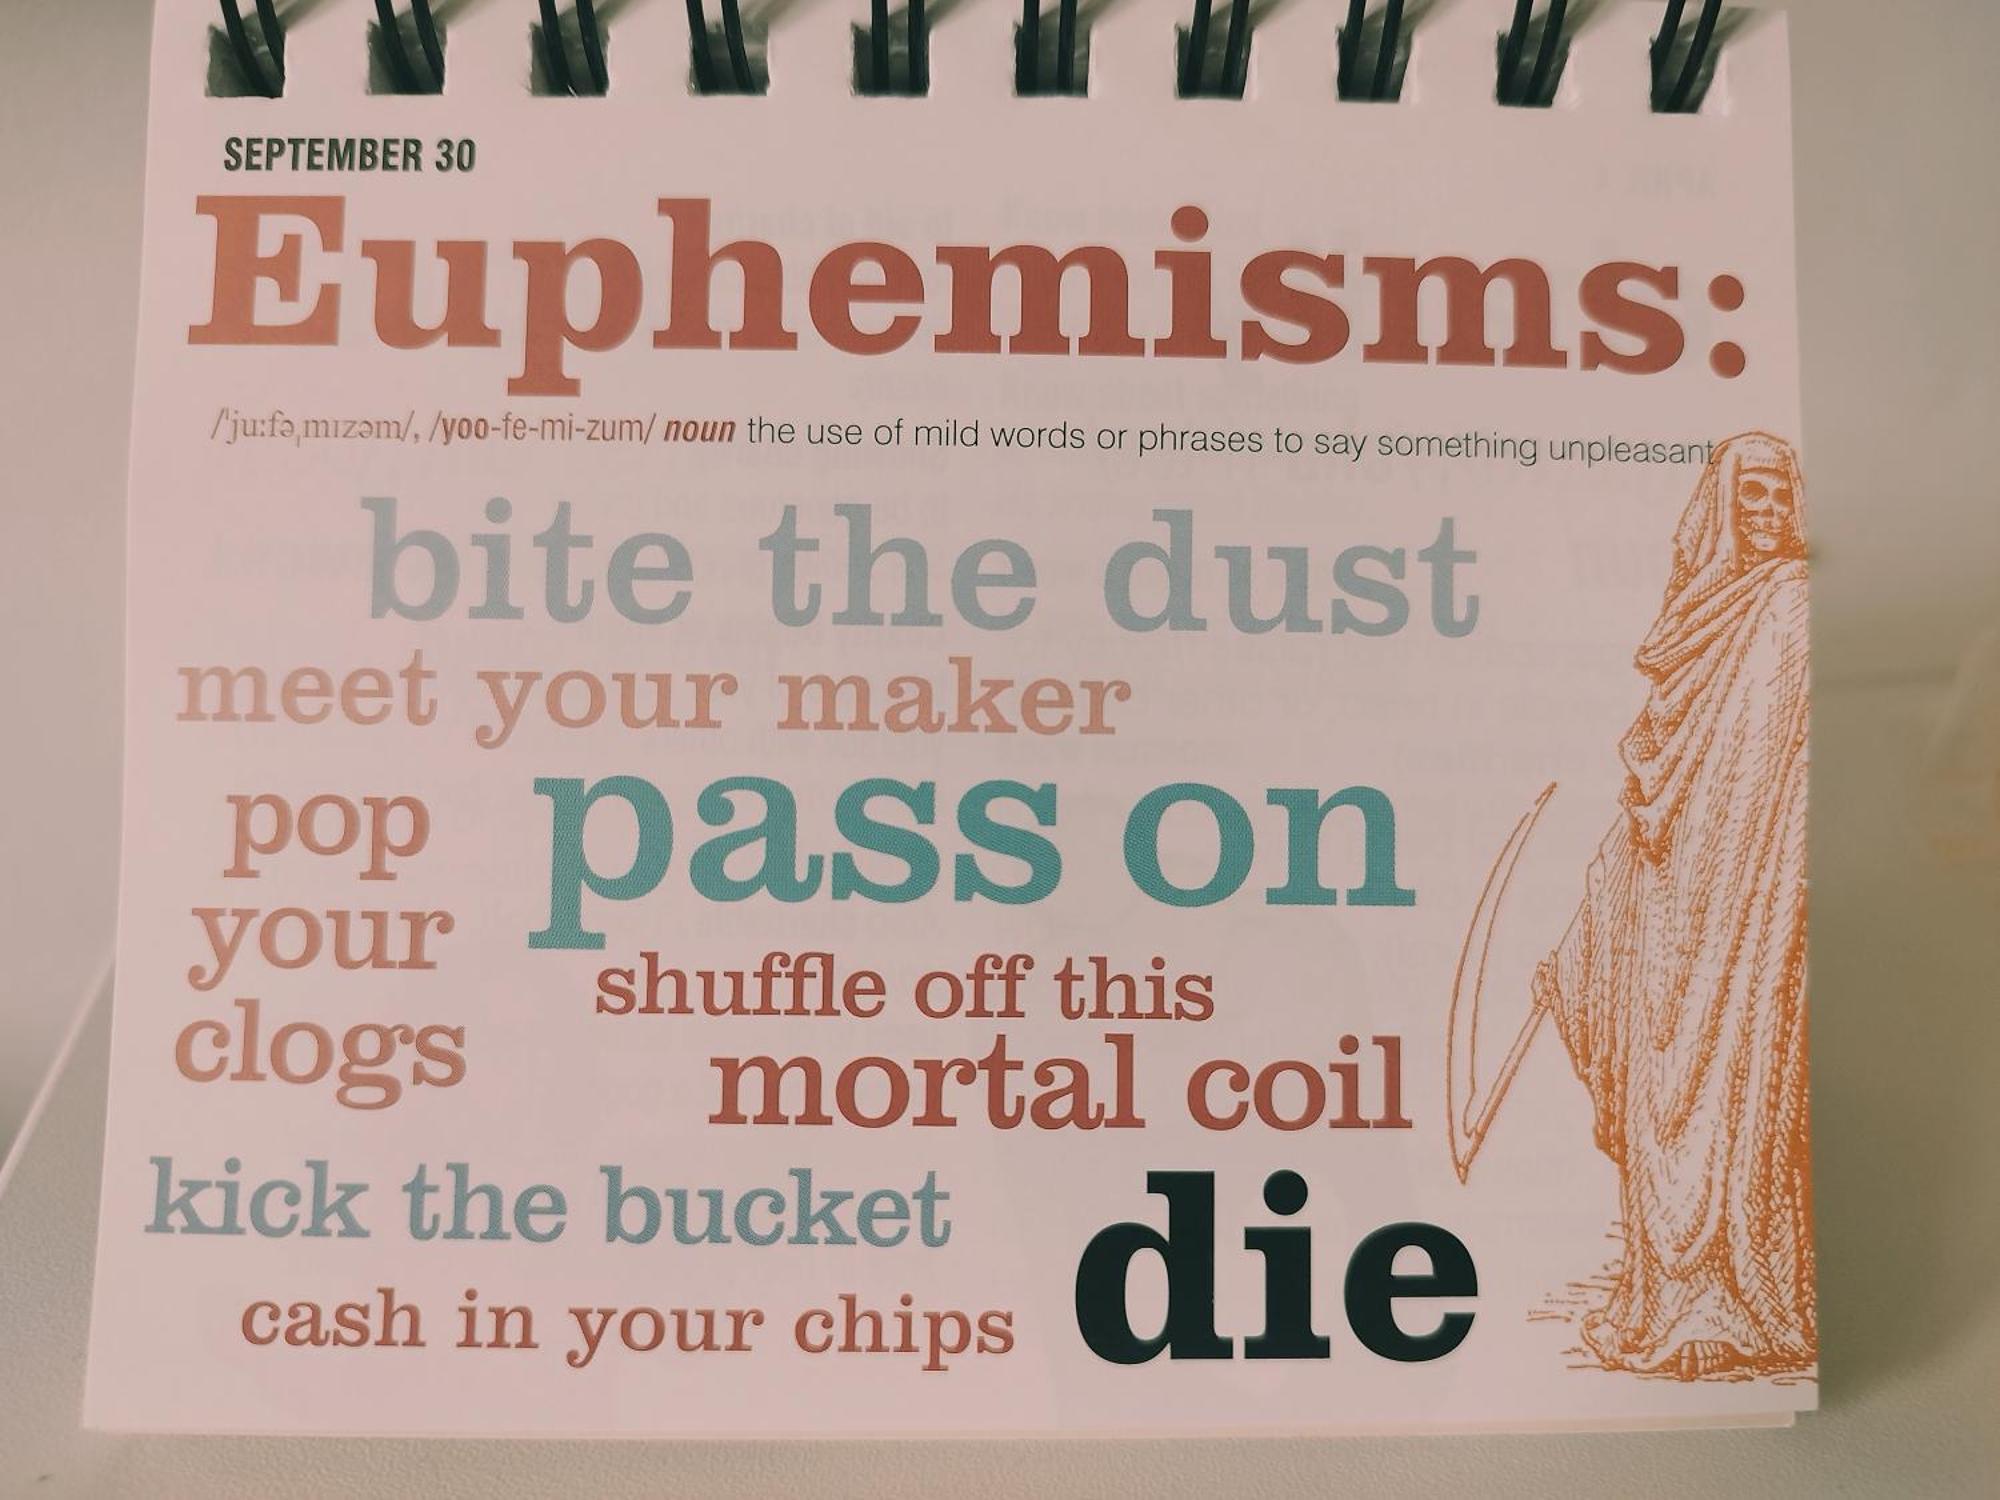 SEPTEMBER 30
Euphemisms:
/ˈjuːfəˌmɪzəm/, /yoo-fe-mi-zum/ noun the use of mild words or phrases to say something unpleasant
bite the dust
meet your maker
pass on
pop
your
clogs
shuffle off this
mortal coil
kick the bucket
die
cash in your chips